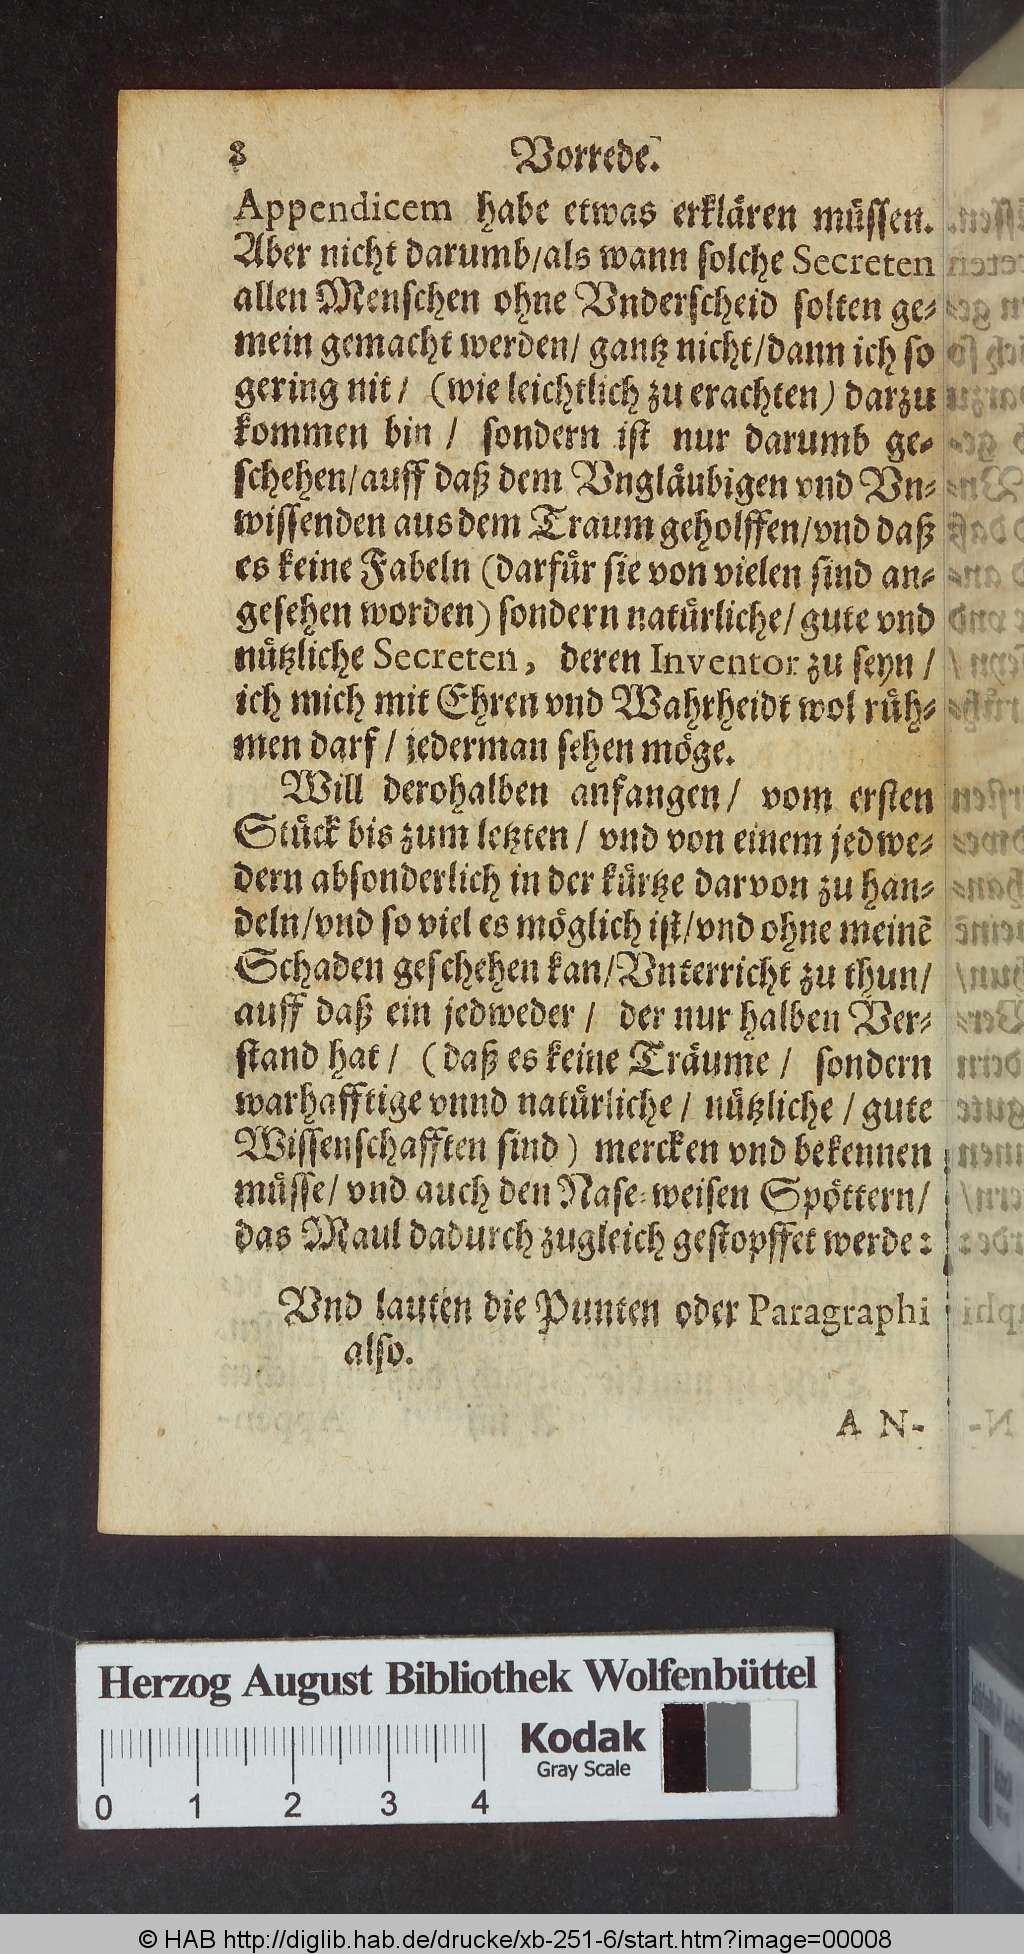 8 Vorrede.
Appendicem habe etwas erklären müssen.
Aber nicht darumb/als wann solche Secreten
allen Menschen ohne Vnderscheid solten ge-
mein gemacht werden/ gantz nicht/dann ich so
gering nit/ (wie leichtlich zu erachten) darzu
kommen bin / sondern ist nur darumb ge-
schehen/auff daß dem Vngläubigen vnd Vn-
wissenden aus dem Traum geholffen/vnd daß
es keine Fabeln (darfür sie von vielen sind an-
gesehen worden) sondern natürliche/ gute vnd
nützliche Secreten, deren Inventor zu seyn /
ich mich mit Ehren vnd Wahrheidt wol rüh-
men darf / jederman sehen möge.
Will derohalben anfangen/ vom ersten
Stück bis zum letzten / vnd von einem jedwe-
dern absonderlich in der kürtze darvon zu han-
deln/vnd so viel es möglich ist/vnd ohne meinē
Schaden geschehen kan/Vnterricht zu thun/
auff daß ein jedweder / der nur halben Ver-
stand hat / (daß es keine Träume / sondern
warhafftige vnnd natürliche / nützliche / gute
Wissenschafften sind) mercken vnd bekennen
müsse/ vnd auch den Nase-weisen Spöttern/
das Maul dadurch zugleich gestopffet werde:
Vnd lauten die Punten oder Paragraphi
also.
A N-
Herzog August Bibliothek Wolfenbüttel
Kodak
Gray Scale
0 1 2 3 4
© HAB http://diglib.hab.de/drucke/xb-251-6/start.htm?image=00008